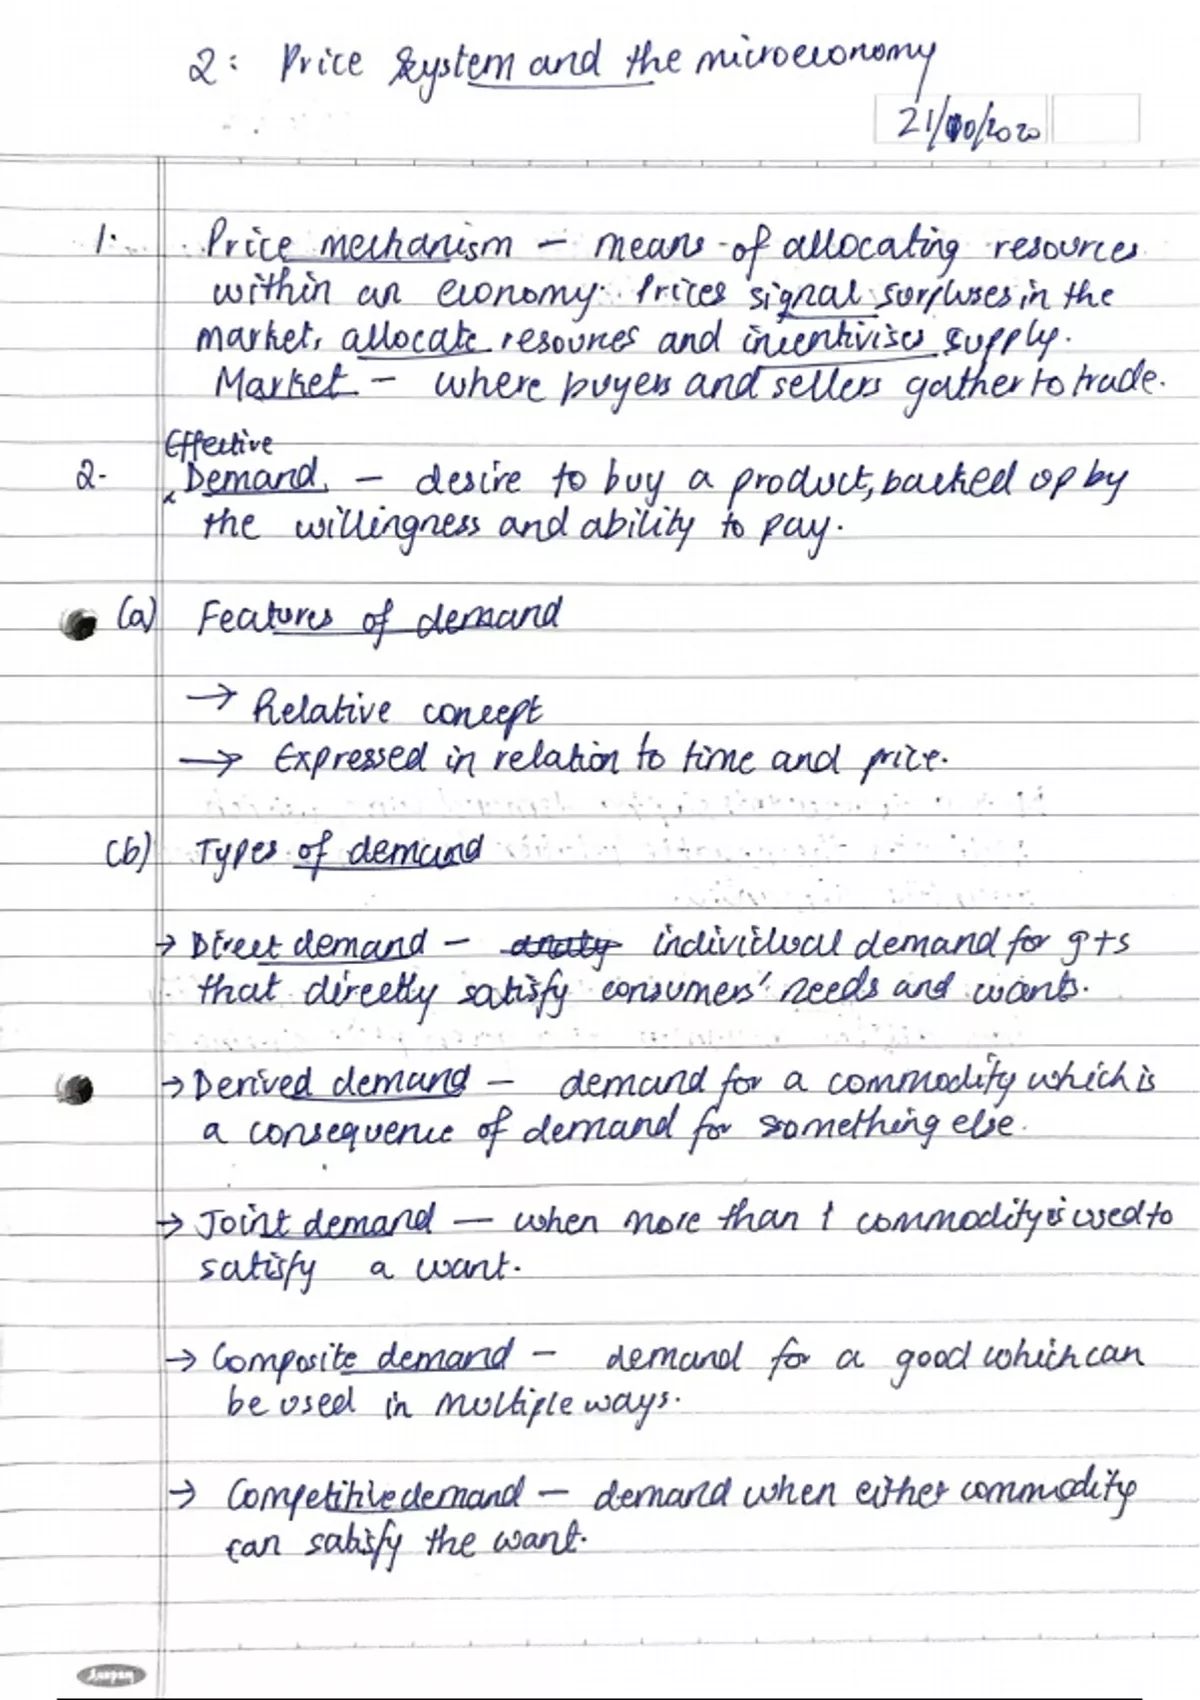 2: Price System and the microeconomy
21/10/2020
1. Price mechanism - means of allocating resources
within an economy. Prices signal surpluses in the
market, allocate resources and incentivises supply.
Market - where buyers and sellers gather to trade.
Effective
2- Demand - desire to buy a product, backed up by
the willingness and ability to pay.
(a) Features of demand
→ Relative concept
→ Expressed in relation to time and price.
(b) Types of demand
→ Direct demand - individual demand for g+s
that directly satisfy consumers' needs and wants.
→ Derived demand - demand for a commodity which is
a consequence of demand for something else.
→ Joint demand - when more than 1 commodity is used to
satisfy a want.
→ Composite demand - demand for a good which can
be used in multiple ways.
→ Competitive demand - demand when either commodity
can satisfy the want.